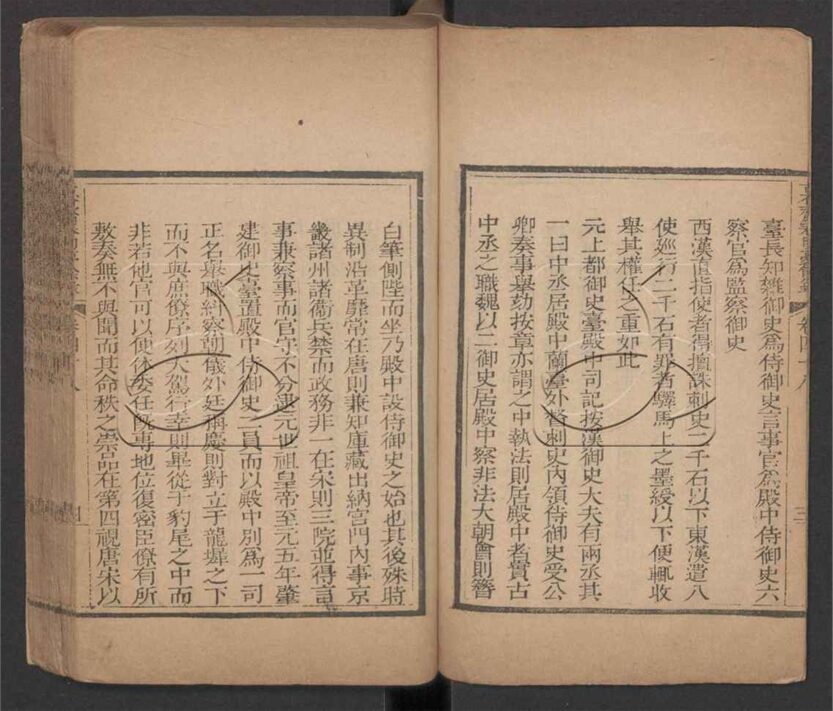 臺長知雜御史爲侍御史言事官爲殿中侍御史六
察官爲監察御史
西漢直指使者得擅誅刺史二千石以下東漢遣八
使廵行二千石有罪者驛馬上之墨綬以下便輒收
舉其權任之重如此
元上都御史臺殿中司記按漢御史大夫有兩丞其
一曰中丞居殿中蘭臺外督刺史內領侍御史受公
卿奏事舉劾按章亦謂之中執法則居殿中者貴古
中丞之職魏以二御史居殿中察非法大朝會則簪
白筆側陛而坐乃殿中設侍御史之始也其後殊時
異制沿革靡常在唐則兼知庫藏出納宮門內事京
畿諸州諸衞兵禁而政務非一在宋則三院並得言
事兼察事而官守不分逮元世祖皇帝至元五年肇
建御史臺置殿中侍御史二員而以殿中別爲一司
正名舉職糾察朝儀外廷稱慶則對立于龍墀之下
而不與庶僚序列大駕行幸則畢從于豹尾之中而
非若他官可以便休委任旣専地位復密臣僚有所
敷奏無不與聞而其命秩之崇品在第四視唐宋以
卷四十八